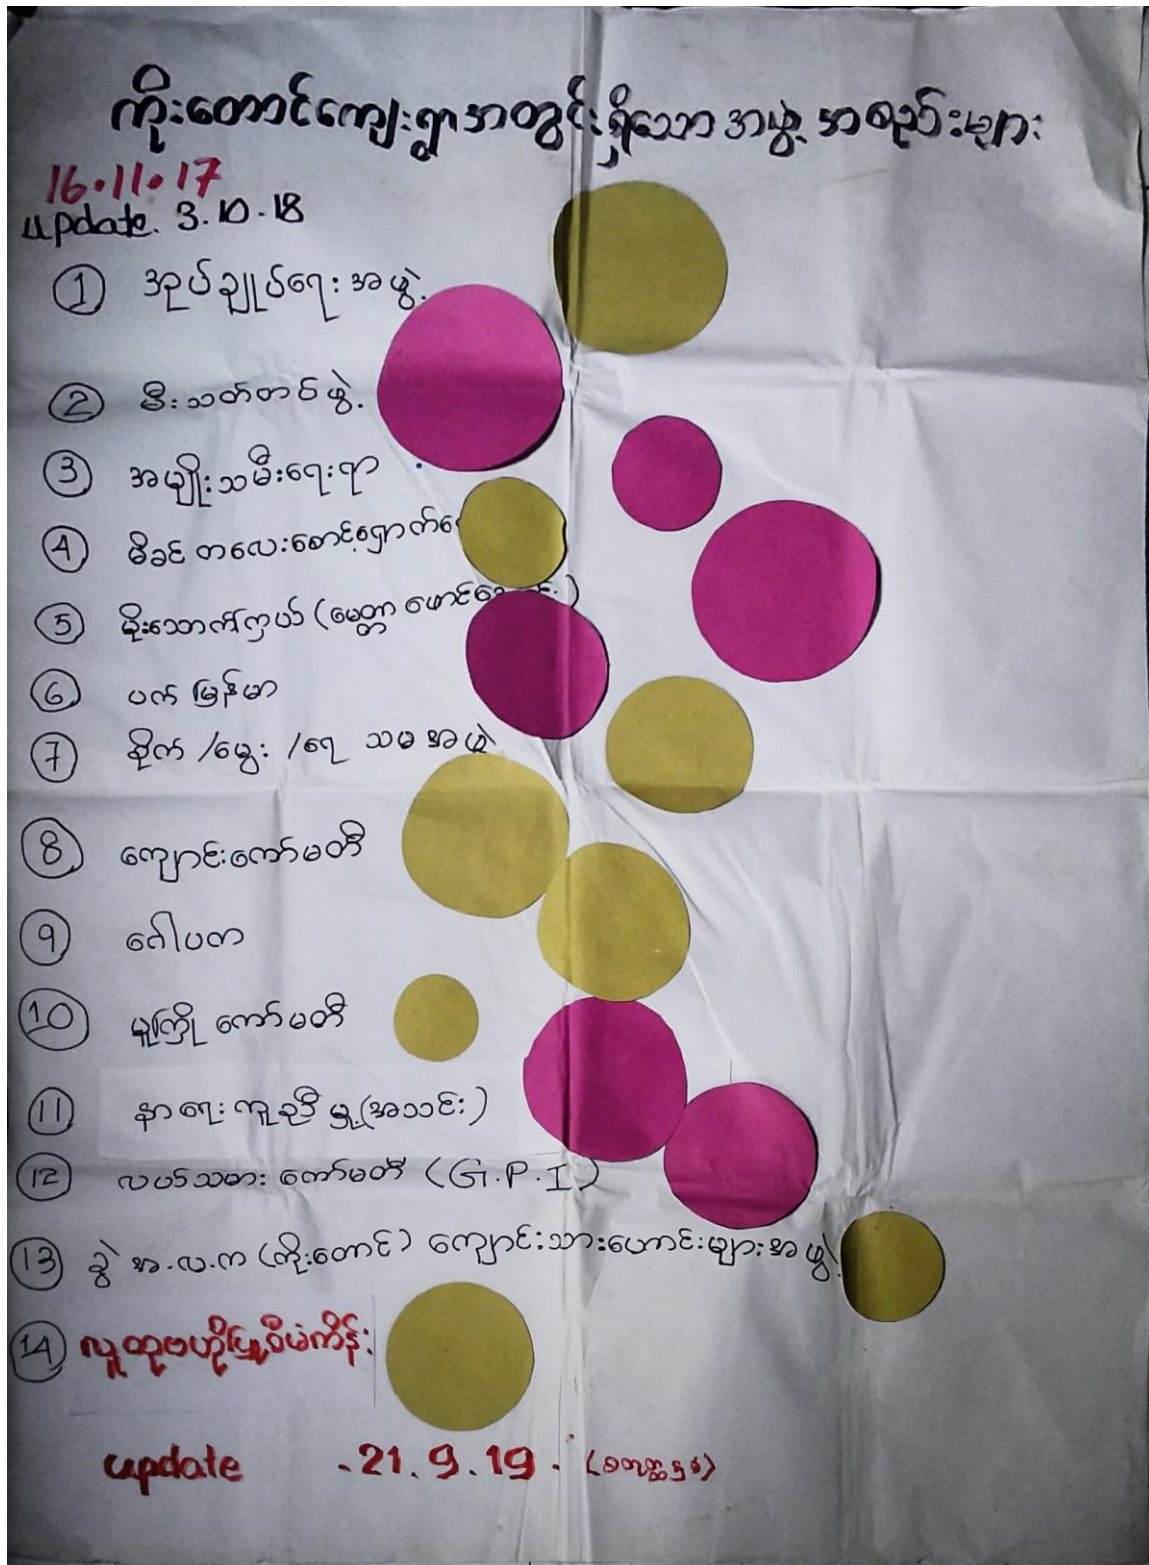 ကိုးတောင်ကျေးရွာအတွင်းရှိသော အဖွဲ့အစည်းများ
16.11.17
update. 3.10.18
① အုပ်ချုပ်ရေးအဖွဲ့
② မီးသတ်တပ်ဖွဲ့
③ အမျိုးသမီးရေးရာ
④ မိခင် ကလေးစောင့်ရှောက်ရေး
⑤ (မေတ္တာ
⑥ ပက် မြန်မာ
⑦ စိုက် /မွေး /ရေ သမ အဖွဲ့
⑧ ကျောင်းကော်မတီ
⑨ ဂေါပက
⑩ မူကြို ကော်မတီ
⑪ နာရေးကူညီမှု (အသင်း)
⑫ လယ်သမား ကော်မတီ (G.P.I)
⑬ ခွဲ အ.လ.က (ကိုးတောင်) ကျောင်းသားဟောင်းများအဖွဲ့
⑭ လူထုဗဟိုပြုစီမံကိန်း
update - 21.9.19. (စတုတ္ထနှစ်)